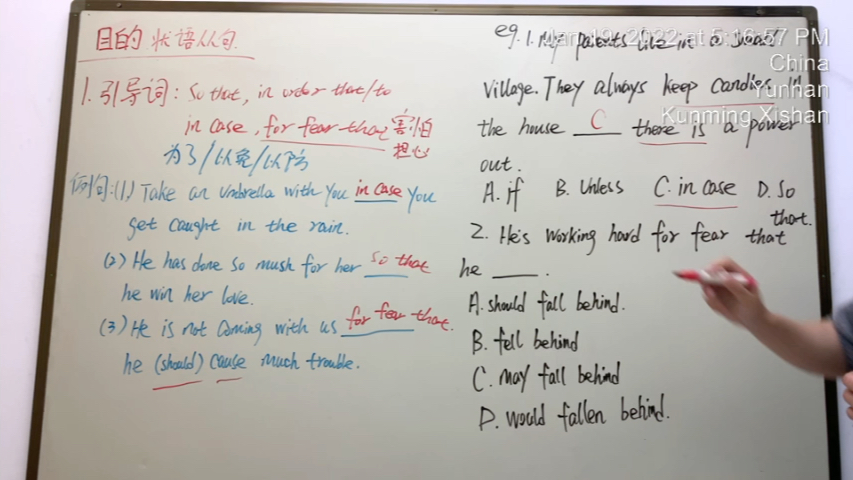 目的状语从句.
1.引导词: So that, in order that/to
in case, for fear that 害怕
担心
为了/以免/以防
例句:(1) Take an umbrella with you in case you
get caught in the rain.
(2) He has done so mush for her so that
he win her love.
(3) He is not coming with us for fear that.
he (should) cause much trouble.
eg. 1. My parents live in a small
village. They always keep candles in
the house C there is a power
out.
A. if B. Unless C. in case D. So
that.
2. He's working hard for fear that
he ____.
A. should fall behind.
B. fell behind
C. may fall behind
D. would fallen behind.
2022 at 5:16:57 PM
China
Yunnan
Kunming Xishan